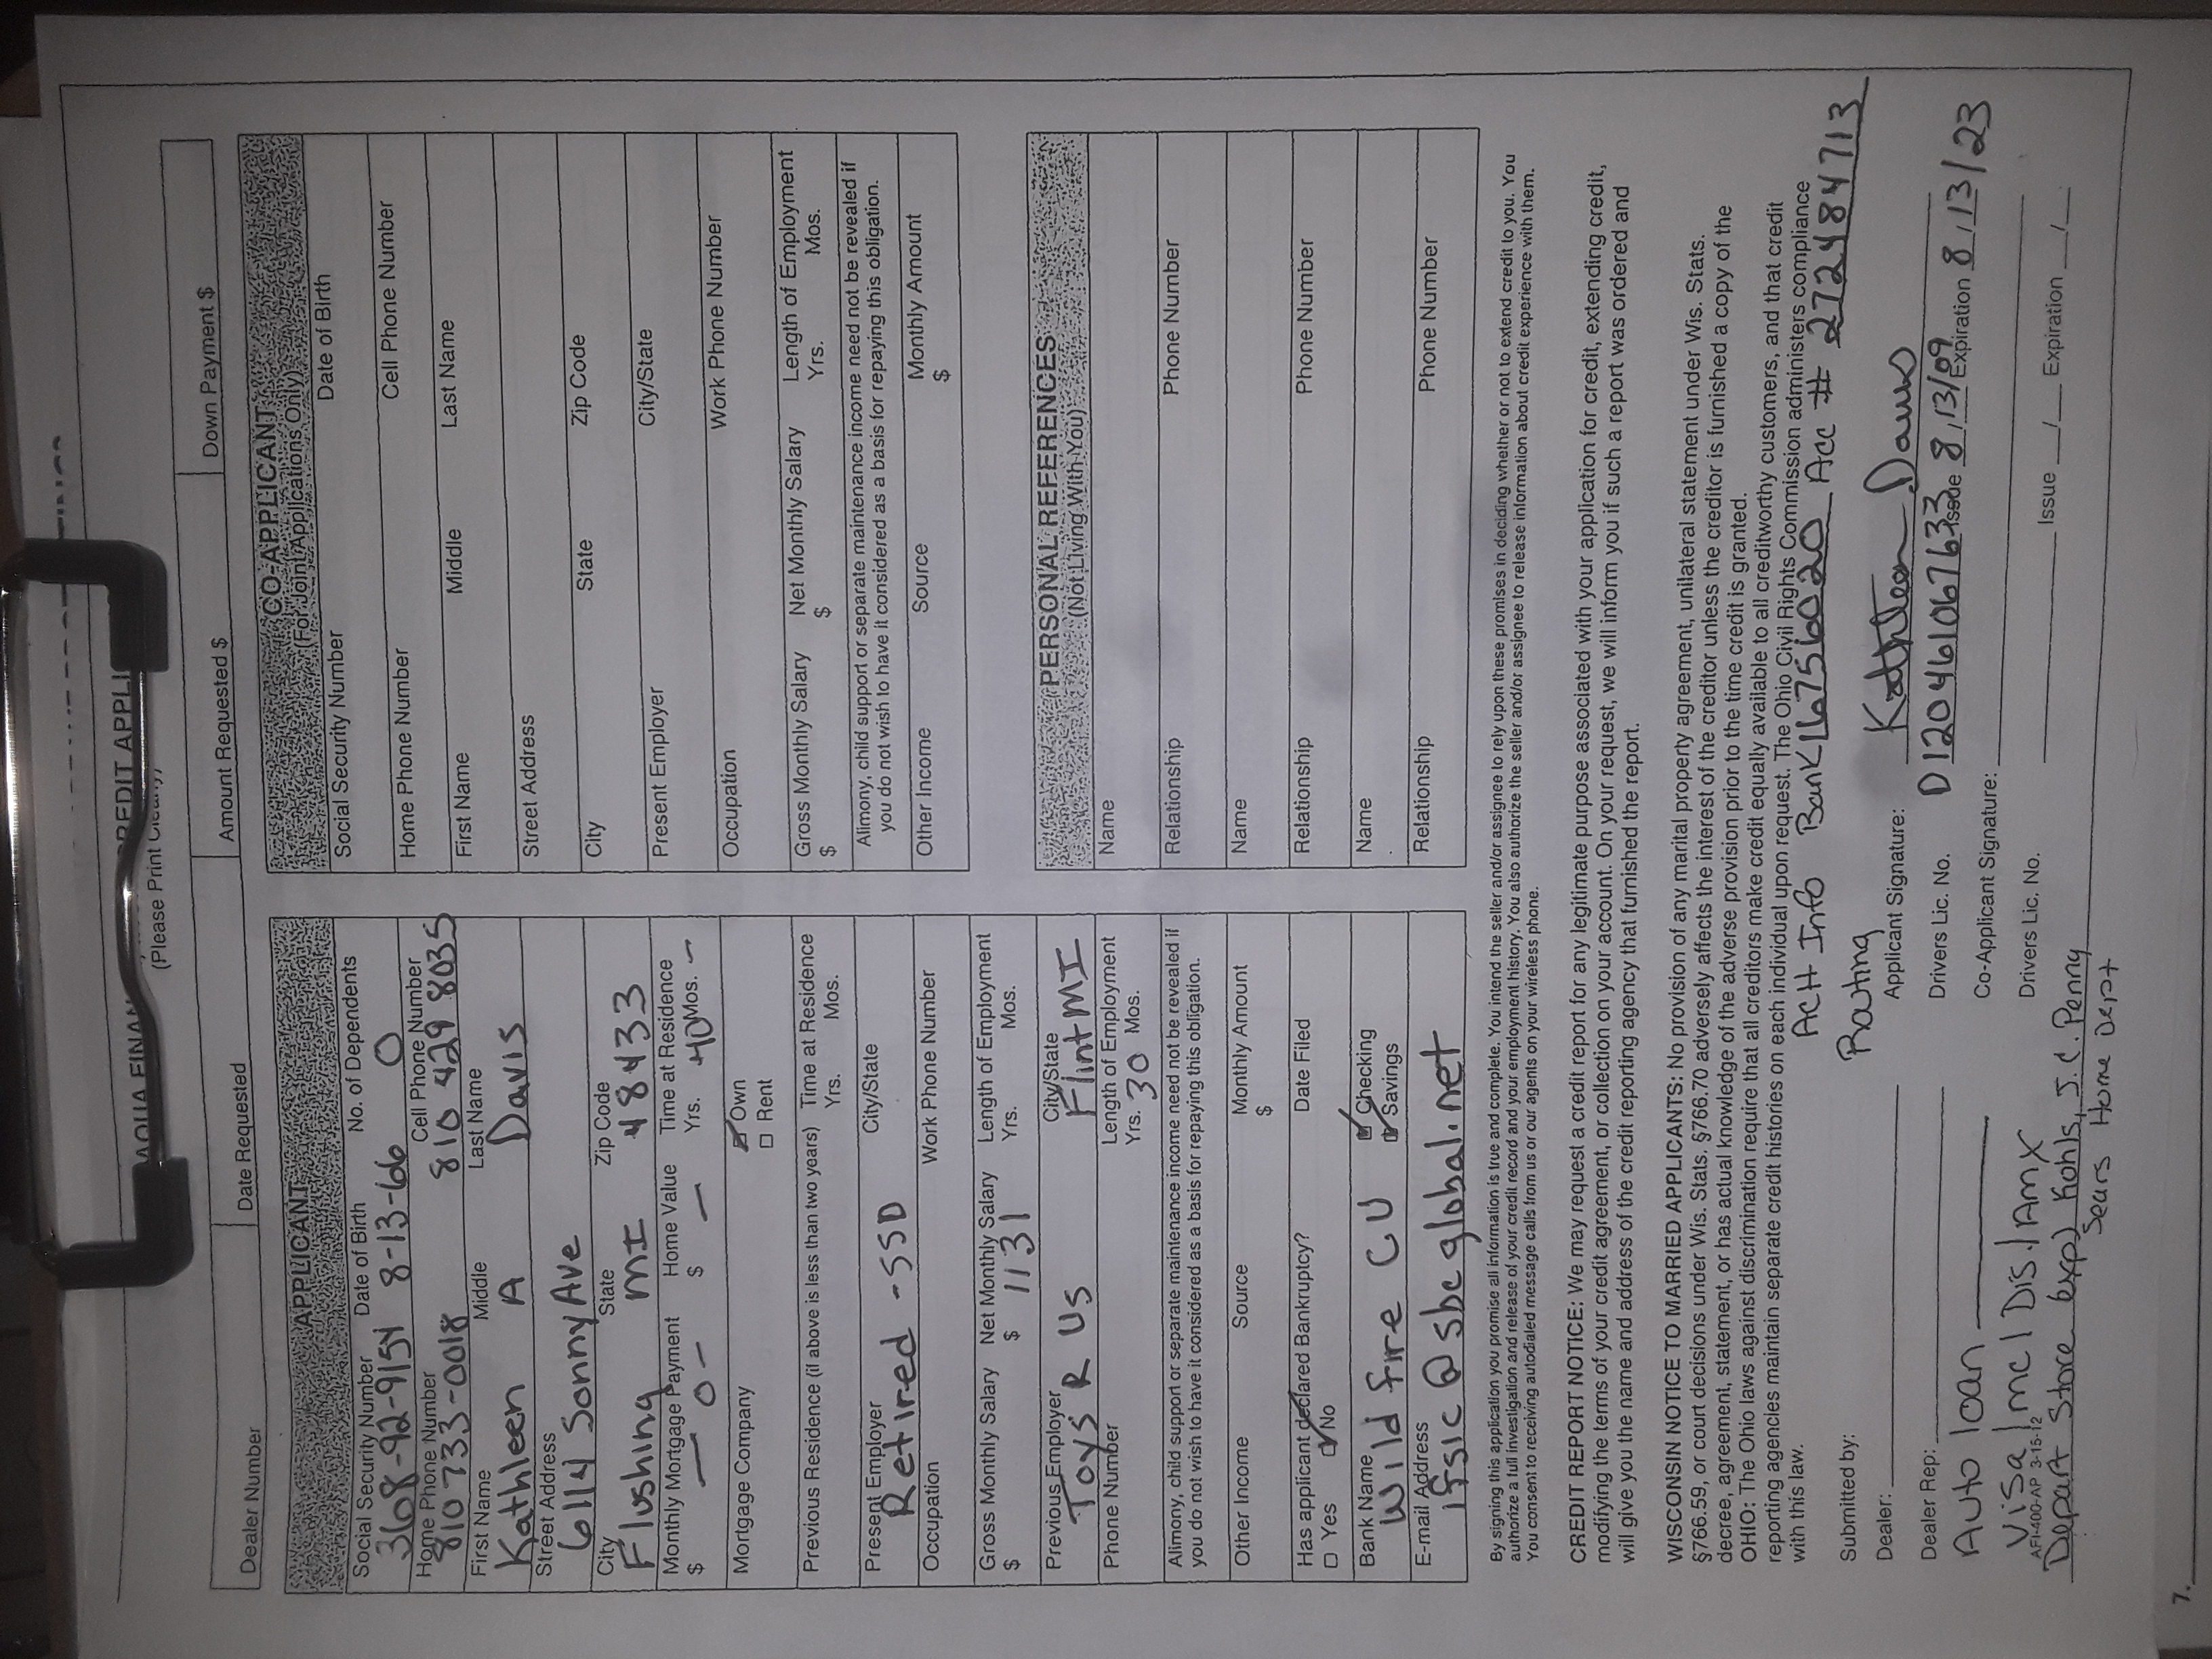 AQUA FINAN REDIT APPLI
(Please Print Clearly)
Dealer Number Date Requested Amount Requested $ Down Payment $
APPLICANT
Social Security Number Date of Birth No. of Dependents
368-92-9154 8-13-66 0
Home Phone Number Cell Phone Number
810 733-0018 810 429 8035
First Name Middle Last Name
Kathleen A Davis
Street Address
6114 Sonny Ave
City State Zip Code
Flushing MI 48433
Monthly Mortgage Payment Home Value Time at Residence
$ — 0 — $ — Yrs. 40 Mos. -
Mortgage Company Own
Rent
Previous Residence (if above is less than two years) Time at Residence
Yrs. Mos.
Present Employer City/State
Retired - SSD
Occupation Work Phone Number
Gross Monthly Salary Net Monthly Salary Length of Employment
$ $ 1131 Yrs. Mos.
Previous Employer City/State
Toys R Us Flint MI
Phone Number Length of Employment
Yrs. 30 Mos.
Alimony, child support or separate maintenance income need not be revealed if
you do not wish to have it considered as a basis for repaying this obligation.
Other Income Source Monthly Amount
$
Has applicant declared Bankruptcy? Date Filed
Yes No
Bank Name Checking
Wild fire CU Savings
E-mail Address
@sbcglobal.net
CO-APPLICANT
(For Joint Applications Only)
Social Security Number Date of Birth
Home Phone Number Cell Phone Number
First Name Middle Last Name
Street Address
City State Zip Code
Present Employer City/State
Occupation Work Phone Number
Gross Monthly Salary Net Monthly Salary Length of Employment
$ $ Yrs. Mos.
Alimony, child support or separate maintenance income need not be revealed if
you do not wish to have it considered as a basis for repaying this obligation.
Other Income Source Monthly Amount
$
PERSONAL REFERENCES
(Not Living With You)
Name
Relationship Phone Number
Name
Relationship Phone Number
Name
Relationship Phone Number
By signing this application you promise all information is true and complete. You intend the seller and/or assignee to rely upon these promises in deciding whether or not to extend credit to you. You
authorize a full investigation and release of your credit record and your employment history. You also authorize the seller and/or assignee to release information about credit experience with them.
You consent to receiving autodialed message calls from us or our agents on your wireless phone.
CREDIT REPORT NOTICE: We may request a credit report for any legitimate purpose associated with your application for credit, extending credit,
modifying the terms of your credit agreement, or collection on your account. On your request, we will inform you if such a report was ordered and
will give you the name and address of the credit reporting agency that furnished the report.
WISCONSIN NOTICE TO MARRIED APPLICANTS: No provision of any marital property agreement, unilateral statement under Wis. Stats.
§766.59, or court decisions under Wis. Stats. §766.70 adversely affects the interest of the creditor unless the creditor is furnished a copy of the
decree, agreement, statement, or has actual knowledge of the adverse provision prior to the time credit is granted.
OHIO: The Ohio laws against discrimination require that all creditors make credit equally available to all creditworthy customers, and that credit
reporting agencies maintain separate credit histories on each individual upon request. The Ohio Civil Rights Commission administers compliance
with this law.
ACH Info Bank Acc # 272484713
Routing
Submitted by:
Dealer:
Dealer Rep:
Applicant Signature: Kathleen Davis
Drivers Lic. No. D120461067633 Issue 8/13/09 Expiration 8/13/23
Co-Applicant Signature:
Drivers Lic. No. Issue __/__ Expiration __/__
Auto loan
Visa/mc/Dis./Amx
AFI-400-AP 3-15-12
Depart Store exp) Kohls, J.C. Penny
Sears Home Depot
7.